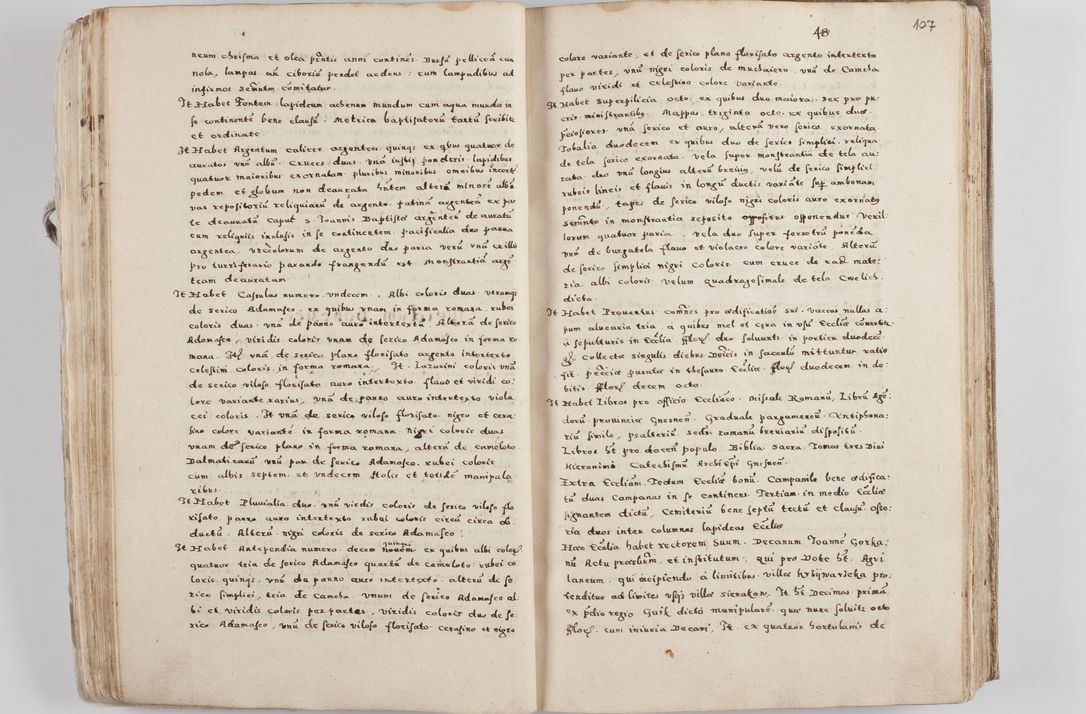 neum chrisma et olea prntis anni continēs. Bursā pelliceā cum
nola, lampas añ ciboriū pendet ardens: cum lampadibus ad
infirmos semp comitatur.
It Habet Fontem lapideum aeneum mundum cum aqua munda in
se continentē bene clausū: metrica baptisatorū tantū scribitur
et ordinate
It Habet Argentum calices argenteos quinqȝ ex qbus quatuor de
auratos unū albū. Cruces duas unā iustiȝ ponderis lapidibus
quatuor maioribus exornatam pluribus minoribus omnibus
pedem et globum non deaurata hntem alterā minorē albā
vas repositoriū reliquiarū de argento. patinā argenteā ex par
te deauratā caput S. Joannis Baptistæ argenteū deauratū
cum reliquiis inclusis in se continentem. pacificalia duo parva
argentea. Vrceolorum de argento duo paria verū unū
pro turriferario parando frangendū est. Monstrantiā argē
team deauratam
It Habet Casulas numero vndecem. Albi coloris duas utramqȝ
de serico Adamasco. ex quibus unam in forma romana. rubei
coloris duas unā de panno auro intertextā. Alterā de serico
Adamasco, viridis coloris unam de serico Adamasco in forma ro
mana. It unā de serico plano florisato argento intertexto
celestini coloris in forma romana. It. Lazurini coloris unā
de serico viloso florisato auro intertexto. flavo et viridi co:
lore variante rarius, unā de panno auro intertexto viola
cei coloris. It unā de serico viloso florisato nigro et cera
sino colore variantē in forma romana. Nigri coloris duas
unam de serico plano in forma romana, alterā de cameloto.
Dalmaticarū unū par de serico Adamasco. rubei coloris
cum albis septem. et undecem stolis et totidē manipula
ribus.
It Habet Pluvialia duo. unū virdis coloris de serico viloso flo
risato panno auro intertexto rubei coloris circū circa ob:
ductū. Alterū nigri coloris de serico Adamasco:
It Habet Antependia numero decem novem quinqȝ ex quibus albi colorȝ
quatuor tria de serico Adamasco quartū de cameloto: rubei co
loris quinqȝ unū de panno auro intertexto. alterū de se:
rico simplici, tria de cameha. unum de serico Adamasco al
bi et viridis coloris per partes, viridis coloris duo de se:
rico Adamasco, unū de serico viloso florisato. cerasino et nigro
48
107
colore variante, et de serico plano florisato argento intertexto
per partes, unū nigri coloris de muchaiero unū de Cameha
flavo viridi et celestino colore variante.
It Habet Superpilicia octo. ex quibus duo maiora. sex pro pu
eris ministrantibus. Mappas triginta octo. ex quibus duo
unā serico et auro, alterā vero serico exornata
Tobalia duodecem ex quibus duo de serico simplici. reliqua
de tela serico exornata. Vela super monstrantiā de tela au:
rata duo unū longius alterū breviȝ, velū de serico simplici
rubeis lineis et flavis in longū ductis variāte sup ambonam
ponendū, tapes de serico viloso nigri coloris auro exornatȝ
in monstrantia reposito opponendus Vexil
lorum quatuor paria. Vela duo super feretrū ponēda
unū de burgatela flavo et violaceo colore variāte. Alterū
de serico simplici nigri coloris cum cruce de ead mate:
ria albi coloris Velum quadragesimale de tela Cwelich
dicta.
It Habet Proventus comēs pro ædificatiōe sui. vaccas nullas a:
pum alvearia tria. a quibus mel et cera in usū Ecclīæ
a sepulturis in Ecclīa. florȝ duo solvunt in porticu duodecē
Collecta singulis diebus Dnīcis in sacculū mittuntur ratio
fit. pecūia parata in thesauro Ecclīæ florȝ duodecem in de
bitis florȝ decem octo.
It Habet Libros pro officio Eccliāco. Missale Romanū, Librū Agē:
dorū provincia Gnesnen. Graduale pargameneū. Antiphona:
riū simile, psalteriū sedis romanū breviariū dispositū.
Libros ht pro docen populo. Biblia sacra. Tomos tres Divi
Hieronimi Catechismū Archiepi Gnesnen.
Extra Eccliām. Tectum Ecclīæ bonū. Campanile bene ædifica:
tū duas Campanas in se continens. Tertiam in medio Ecclīæ
signantem dictā, Cemiteriū bene septū tectū et clausū. Osto:
ria duos inter columnas lapideas Ecclīæ
Hæc Ecclīa habet rectorem suum. Decanum Joannē Gorka:
nū Actu præsbrum. et institutum. qui pro Dote ht. Agri
laneum. qui incipiendo a limitibus villæ Krzijwaricka pro
tenditur ad limites usqȝ villæ Sierakow. It ht Decimas primā
ex pdio regio Gaik dicto manipularē. qua nunc solvit octo
florȝ. cum iniuria Decani, It. ex quatuor hortulanis de